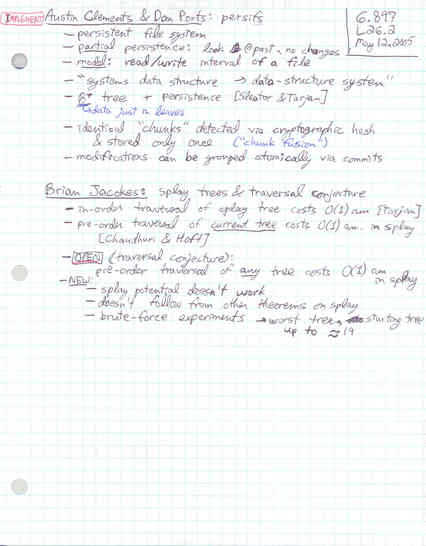 IMPLEMENT Austin Clements & Dan Ports: persifs
6.897
L26.2
May 12, 2005
- persistent file system
- partial persistence: look @ past, no changes
- model: read/write interval of a file
- "systems data structure → data-structure system"
- B+ tree + persistence [Sleator & Tarjan]
data just in leaves
- identical "chunks" detected via cryptographic hash
& stored only once ("chunk fusion")
- modifications can be grouped atomically via commits
Brian Jacokes: splay trees & traversal conjecture
- in-order traversal of splay tree costs O(1) am. [Tarjan]
- pre-order traversal of current tree costs O(1) am. in splay
[Chaudhuri & Höft]
- OPEN (traversal conjecture):
pre-order traversal of any tree costs O(1) am. in splay
- NEW:
- splay potential doesn't work
- doesn't follow from other theorems on splay
- brute-force experiments → worst tree, starting tree
up to ≈ 19